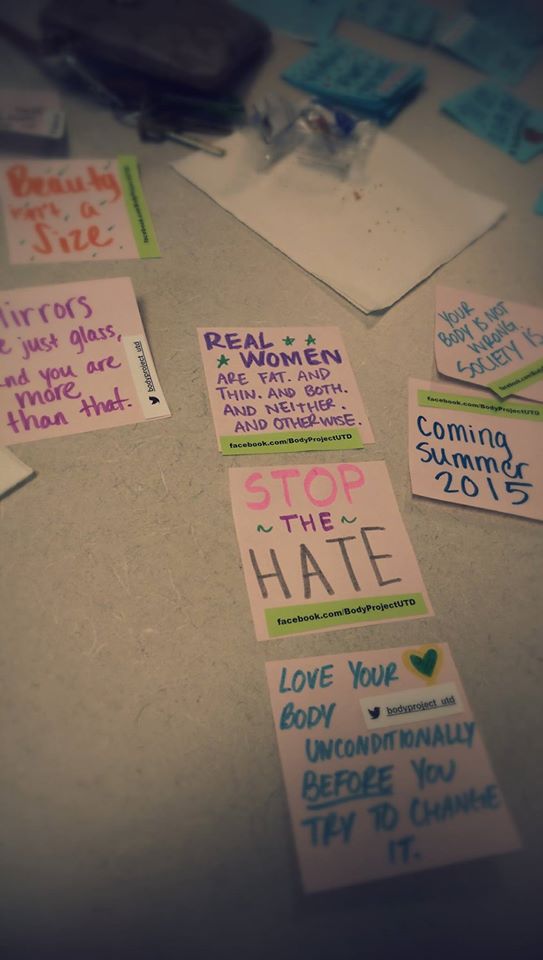 Beauty
isn't a
size
Mirrors
just glass,
and you are
more
than that.
bodyproject_utd
REAL
WOMEN
ARE FAT. AND
THIN. AND BOTH.
AND NEITHER.
AND OTHERWISE.
facebook.com/BodyProjectUTD
YOUR
BODY IS NOT
WRONG.
SOCIETY IS
facebook.com/BodyProjectUTD
coming
summer
2015
STOP
~ THE ~
HATE
facebook.com/BodyProjectUTD
LOVE YOUR
BODY
bodyproject_utd
UNCONDITIONALLY
BEFORE YOU
TRY TO CHANGE
IT.